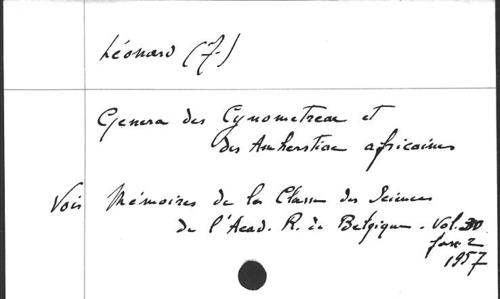 Léonard (J.)
Genera des Cynometreae et
des Amherstiae africaines
Voir Mémoires de la Classe des Sciences
de l'Acad. R. de Belgique. Vol. 30
fasc 2
1957